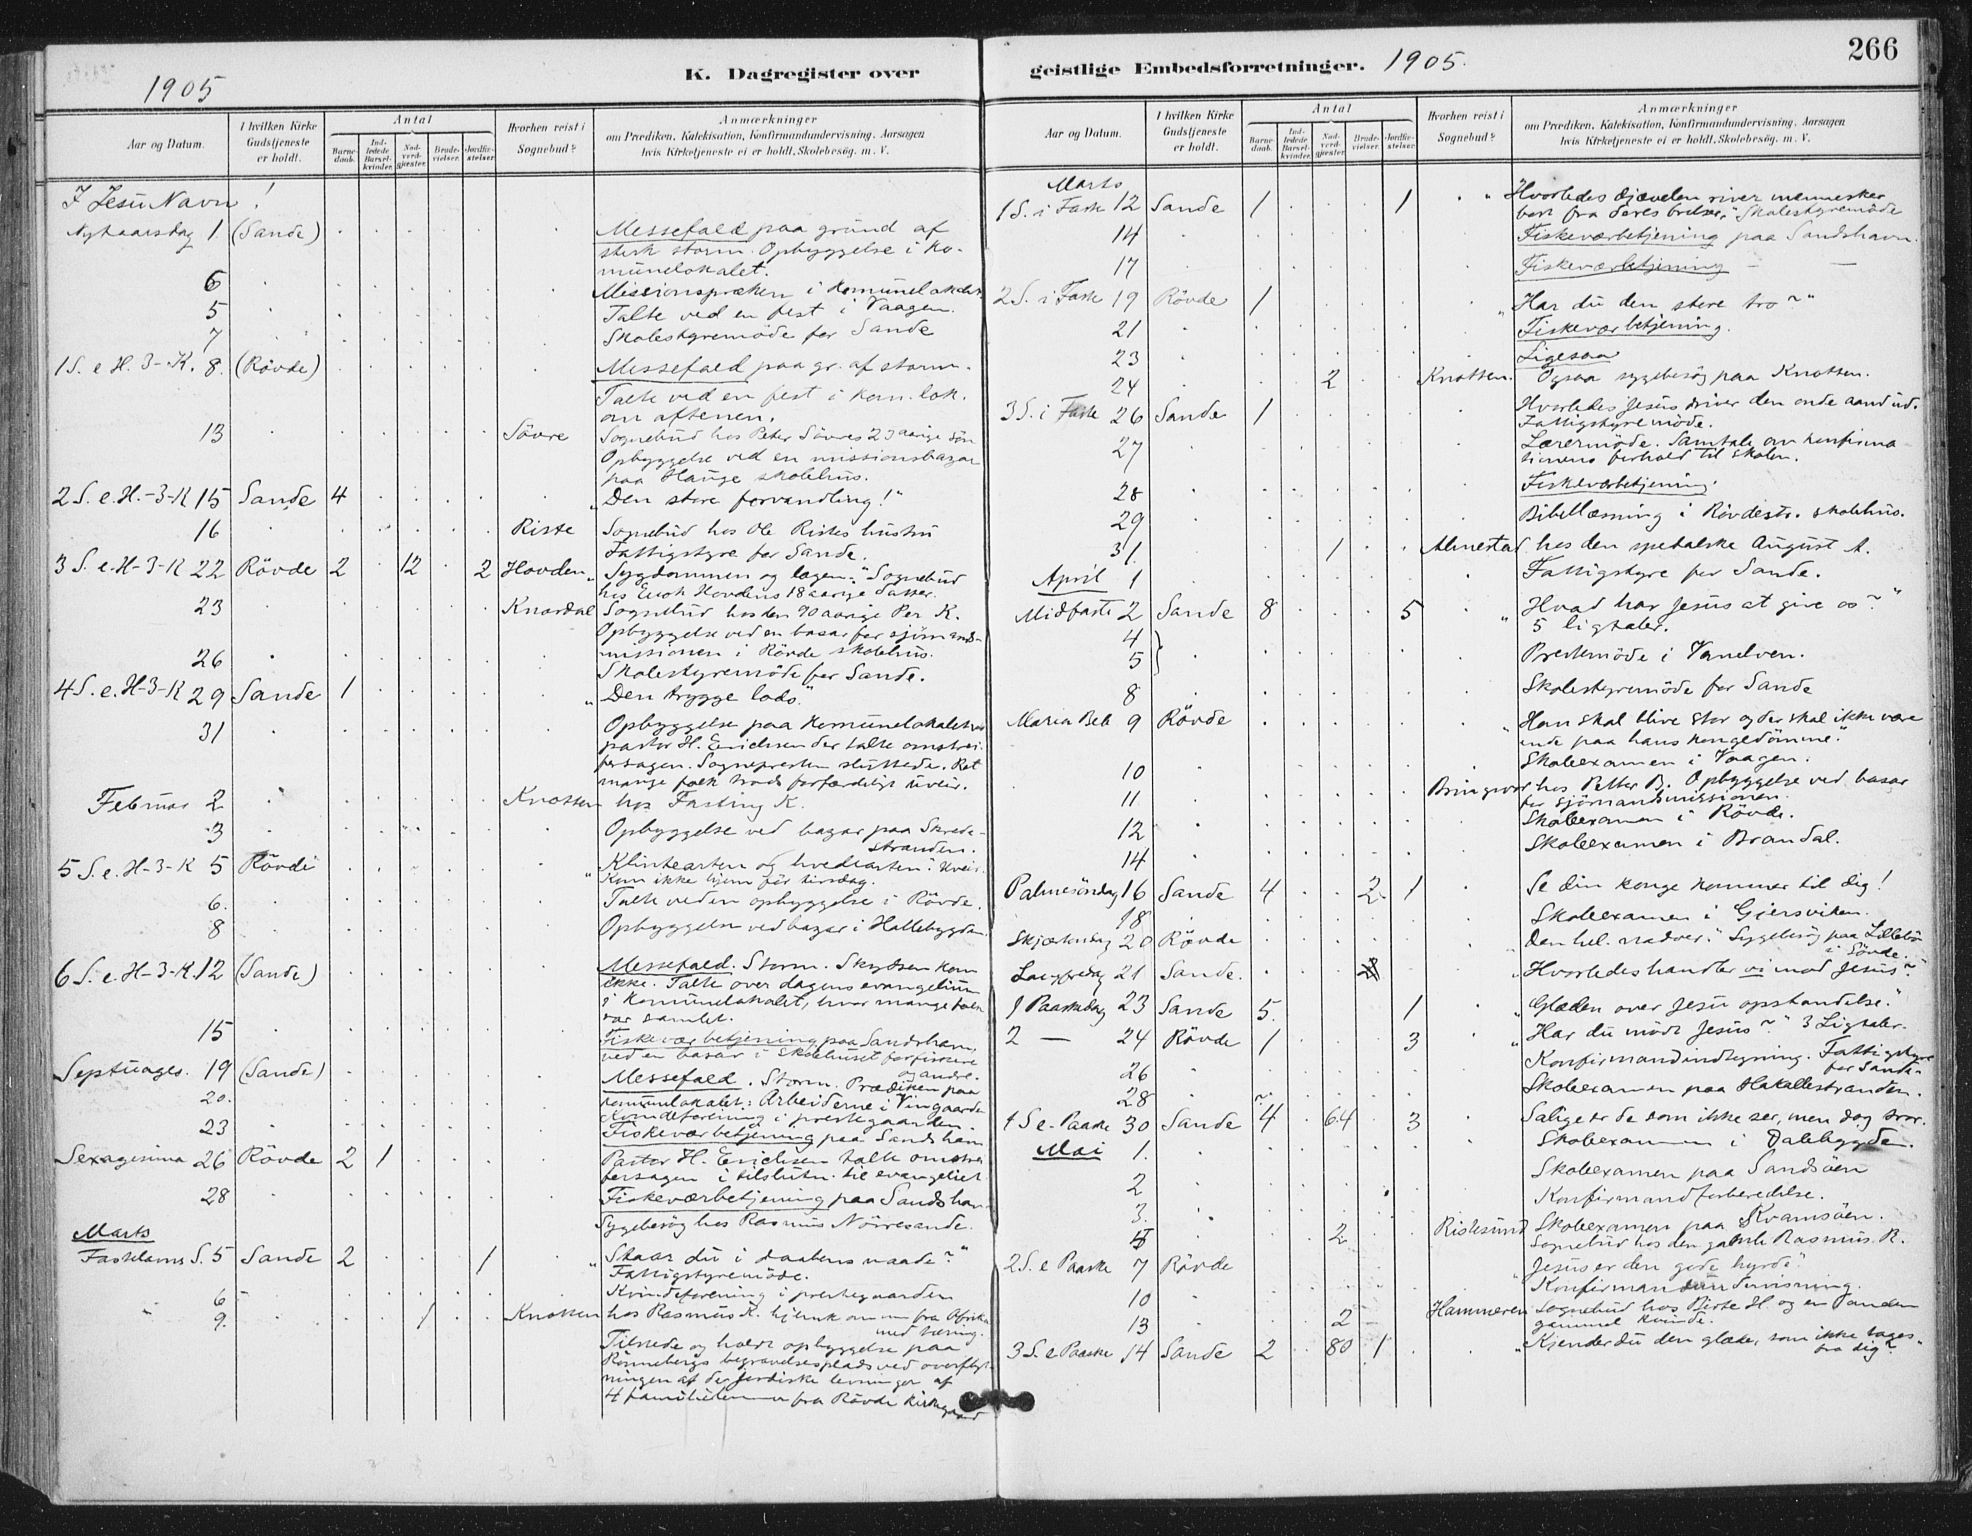 266
1905
K. Dagregister over
geistlige Embedsforretninger. 1905.
Aar og Datum.
I hvilken Kirke Gudstjeneste er holdt.
Antal
Barnedaab.
Indledede Barselkvinder.
Nadverdgjester.
Brudevielser.
Jordfæstelser.
Hvorhen reist i Sognebud?
Anmærkninger
om Prædiken, Katekisation, Konfirmandundervisning, Aarsagen
hvis Kirketjeneste ei er holdt, Skolebesøg. m. V.
I Jesu Navn!
Nytaarsdag 1. (Sande) Messefald paa grund af
sterk storm. Opbyggelse i ko-
munelokalet.
6 Missionspræken i Komunelokalet.
5 Talte ved en fest i Vaagen.
7 Skolestyremöde for Sande
1 S. e H. 3-K. 8. (Rövde) Messefald paa gr. af storm.
Talte ved en fest i kom. lok.
om aftenen.
13 Sövre Sognebud hos Peter Sövres 23 aarige sön
Opbyggelse ved en missionsbazar
paa Hauge skolehus.
2 S. e. H.-3-K 15 Sande 4 „Den store forvandling!“
16 Riste Sognebud hos Ole Ristes hustru
Fattigstyre for Sande.
3 S. e-H-3-K 22 Rövde 2 12 2 Hovden „Sygdommen og lægen.“ Sognebud
hos Hovdens 18 aarige datter.
23 Knardal Sognebud hos den 90 aarige Per K.
Opbyggelse ved en basar for sjömands-
missionen i Rövde skolehus.
26 Skolestyremöde for Sande.
4 S. e. H-3-K 29 Sande 1 „Den trygge lods“
31 Opbyggelse paa Komunelokalet hvor
pastor H. Erichsen der talte om strei-
fersagen. Sognepresten sluttede. Ret
mange folk trods forfærdeligt uveir.
Februar 2 Knotten hos Fasting K.
3 Opbyggelse ved bazar paa Skrede-
stranden.
5 S. e. H-3-K 5 Rövde „Klintearten og hvedearten“. Uveir.
Kom ikke hjem för tirsdag.
6. Talte ved en opbyggelse i Rövde.
8 Opbyggelse ved bazar i Hallebygden
6 S. e-H-3-K. 12 (Sande) Messefald. Storm. Skydsen kom
ikke. Talte over dagens evangelium
i Komunelokalet, hvor mange folk
var samlet.
15 Fiskeværbetjening paa Sandshavn,
ved en basar i skolehuset for fiskere
og andre.
Septuages. 19 (Sande) Messefald. Storm. Prædiken paa
komunelokalet: Arbeiderne i Vingaarden
20. Kvindeforening i prestegaarden.
23 Fiskeværbetjening paa Sandshavn
Sexagesima 26 Rövde 2 1 Pastor H. Erichsen talte om strei-
fersagen i tilslutn. til evangeliet
28 Fiskeværbetjening paa Sandshavn
Sygebesög hos Rasmus Nörresande.
Marts
Fastelavns S. 5 Sande 2 1 „Staar du i daabens naade?“
Fattigstyremöde.
6 Kvindeforening i prestegaarden
9. 1 Knotten hos Rasmus K. hjemkommen fra Afrika
med tæring.
Tilstede og holdt opbyggelse paa
Rönnebergs begravelsesplads ved overflyt-
ningen af de jordiske levninger af
4 familielemmer fra Rövde kirkegaard
Aar og Datum.
I hvilken Kirke Gudstjeneste er holdt.
Antal
Barnedaab.
Indledede Barselkvinder.
Nadverdgjester.
Brudevielser.
Jordfæstelser.
Hvorhen reist i Sognebud?
Anmærkninger
om Prædiken, Katekisation, Konfirmandundervisning, Aarsagen
hvis Kirketjeneste ei er holdt, Skolebesøg. m. V.
Marts
1 S. i Faste 12 Sande 1 1 „Hvorledes djævelen river mennesker
bort fra deres frelser.“ Skolestyremöde
14 Fiskeværbetjening paa Sandshavn.
17 Fiskeværbetjening — —
2 S. i Faste 19 Rövde 1 „Har du den store tro?“
21 Fiskeværbetjening.
23 Ligesaa
24 2 Knotten. Ogsaa sygebesög paa Knotten.
3 S. i Faste 26 Sande 1 Hvorledes Jesus driver den onde aand ud.
Fattigstyremöde.
27 Lærermöde. Samtale om konfirma
tionens forhold til skolen.
28 Fiskeværbetjening.
29 Bibellæsning i Rövdestr. skolehus.
31. 1 Almestad hos den spedalske August A.
April 1 Fattigstyre for Sande.
Midfaste 2 Sande 8 5 „Hvad har Jesus at give os?“
5 ligtaler.
4
5 Prestemöde i Vanelven.
8 Skolestyremöde for Sande
Maria Beb 9 Rövde „Han skal blive stor og der skal ikke være
ende paa hans kongedömme.“
10 Skoleexamen i Vaagen.
11. Bringsvor hos Petter B. Opbyggelse ved basar
for sjömandsmissionen.
12 Skoleexamen i Rövde.
14 Skoleexamen i Brandal.
Palmesöndag 16 Sande 4 2 1 Se din konge kommer til dig!
18 Skoleexamen i Gjersviken.
Skjærtorsdag 20 Rövde Den hel. nadver.“ Sygebesög paa Lillebö
i Sövde.
Langfredag 21 Sande. 2 „Hvorledes handler vi mod Jesus?“
1 Paaskedag 23 Sande 5. 1 „Glæden over Jesu opstandelse.“
2 — 24 Rövde 1 3 „Har du mödt Jesus?“ 3 Ligtaler.
26 Konfirmandindtegning. Fattigstyre
for Sande.
28 Skoleexamen paa Hakallestranden.
1 S e. Paaske 30 Sande 4 64 3 Salige er de som ikke ser, men dog tror.
Mai 1. Skoleexamen i Dalebygde.
2 Skoleexamen paa Sandsöen
3. Konfirmandforberedelse.
Skoleexamen paa Kvamsöen.
2 Ristesund Sognebud hos den gamle Rasmus R.
2 S. e Paaske 7 Rövde „Jesus er den gode hyrde“
10 Konfirmandundervisning.
13 2 Hammeren Sognebud hos Birte H. og en anden
gammel kvinde.
3 S. e Paaske 14 Sande 2 80 1 „Kjender du den glæde, som ikke tages
fra dig?“